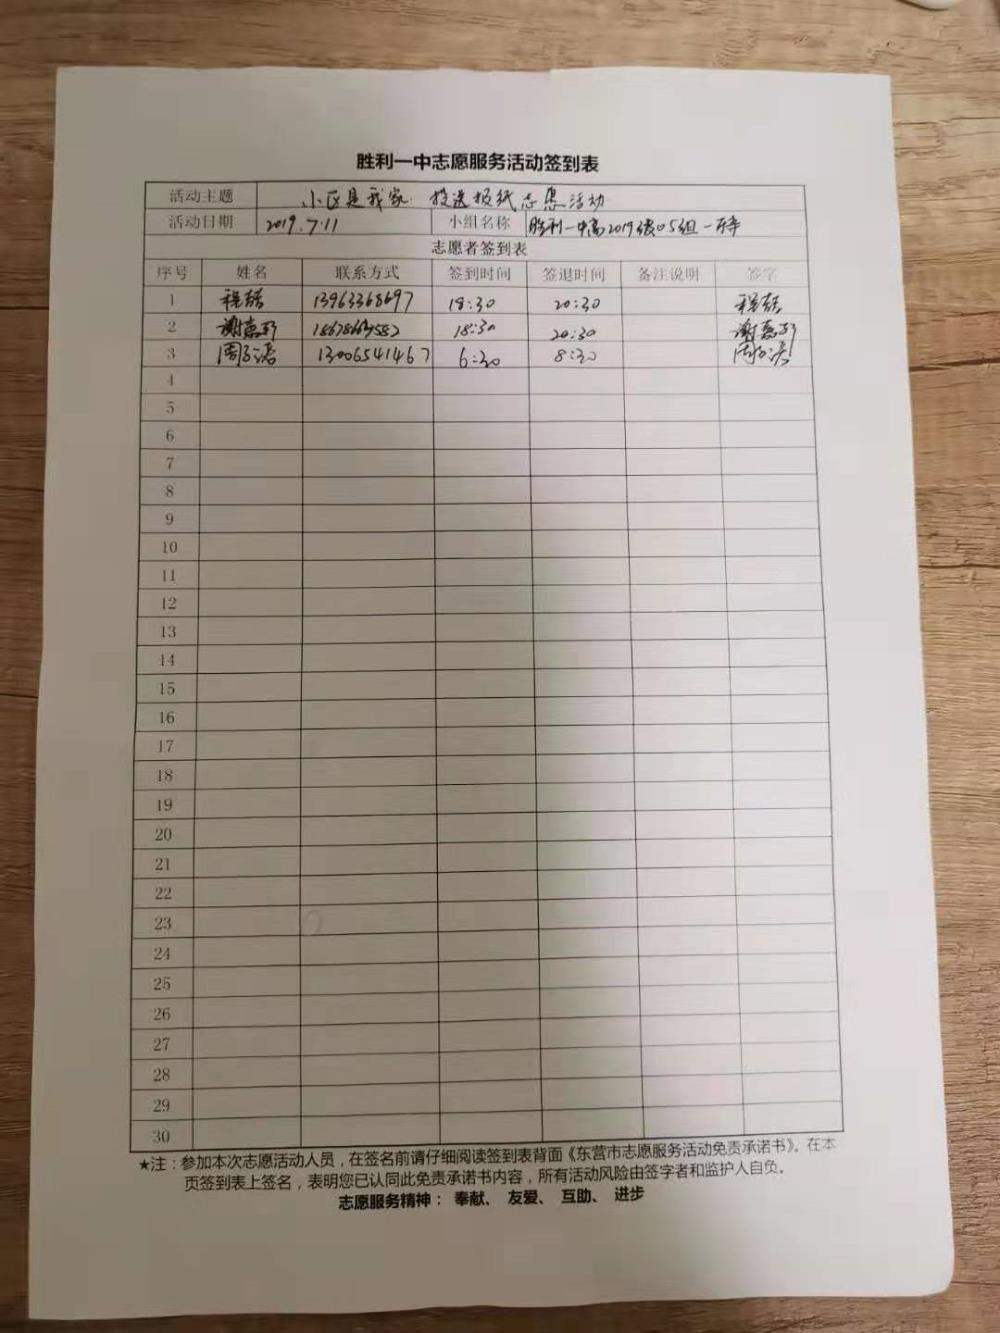 胜利一中志愿服务活动签到表
活动主题 小区是我家 投送报纸志愿活动
活动日期 2019.7.11 小组名称 胜利一中高2019级05组
志愿者签到表
序号 姓名 联系方式 签到时间 签退时间 备注说明 签字
1 13963368697 18:30 20:30
2 18:30 20:30
3 13006541467 6:30 8:30
4
5
6
7
8
9
10
11
12
13
14
15
16
17
18
19
20
21
22
23
24
25
26
27
28
29
30
★注：参加本次志愿活动人员，在签名前请仔细阅读签到表背面《东营市志愿服务活动免责承诺书》。在本
页签到表上签名，表明您已认同此免责承诺书内容，所有活动风险由签字者和监护人自负。
志愿服务精神： 奉献、 友爱、 互助、 进步